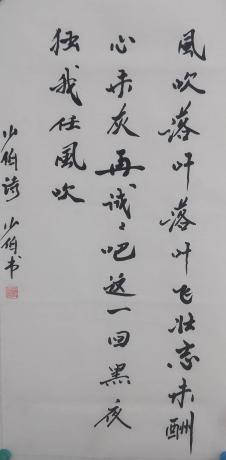 風吹落叶落叶飞壮志未酬
心未灰再试々吧这一回黑夜
独我任風吹
少伯诗 少伯书